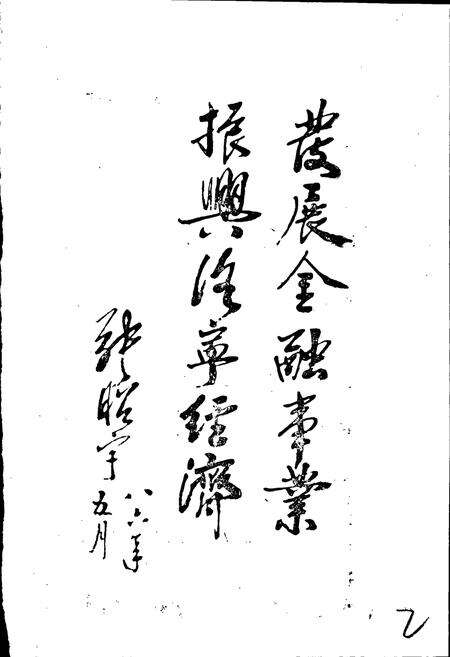 發展金融事業
振興寧經濟
昭宇
八六年
五月